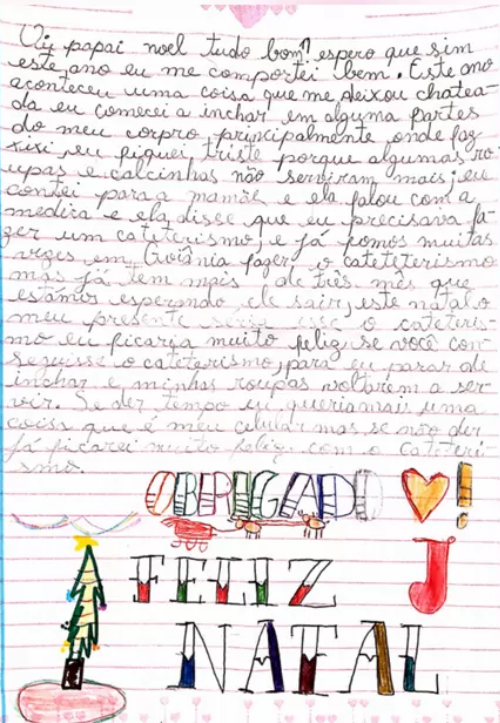 Oi papai noel tudo bom? espero que sim
este ano eu me comportei bem. Este ano
aconteceu uma coisa que me deixou chatea-
da eu comecei a inchar em alguma partes
do meu corpro principalmente onde faz
xixi eu fiquei triste porque algumas ro-
upas e calcinhas não serviram mais; eu
contei para a mamãe e ela falou com a
medica e ela disse que eu precisava fa-
zer um cateterismo, e já fomos muitas
vezes em Goiânia fazer o cateteterismo
mas já tem mais de três mês que
estamos esperando ele sair, este natal o
meu presente seria esse o cateteris-
mo eu ficaria muito feliz se você con-
seguisse o cateterismo, para eu parar de
inchar e minhas roupas voltarem a ser-
vir. Se der tempo eu queria mais uma
coisa que é meu celular mas se não der
já ficarei muito feliz com o cateteri-
smo.
OBRIGADO !
FELIZ
NATAL